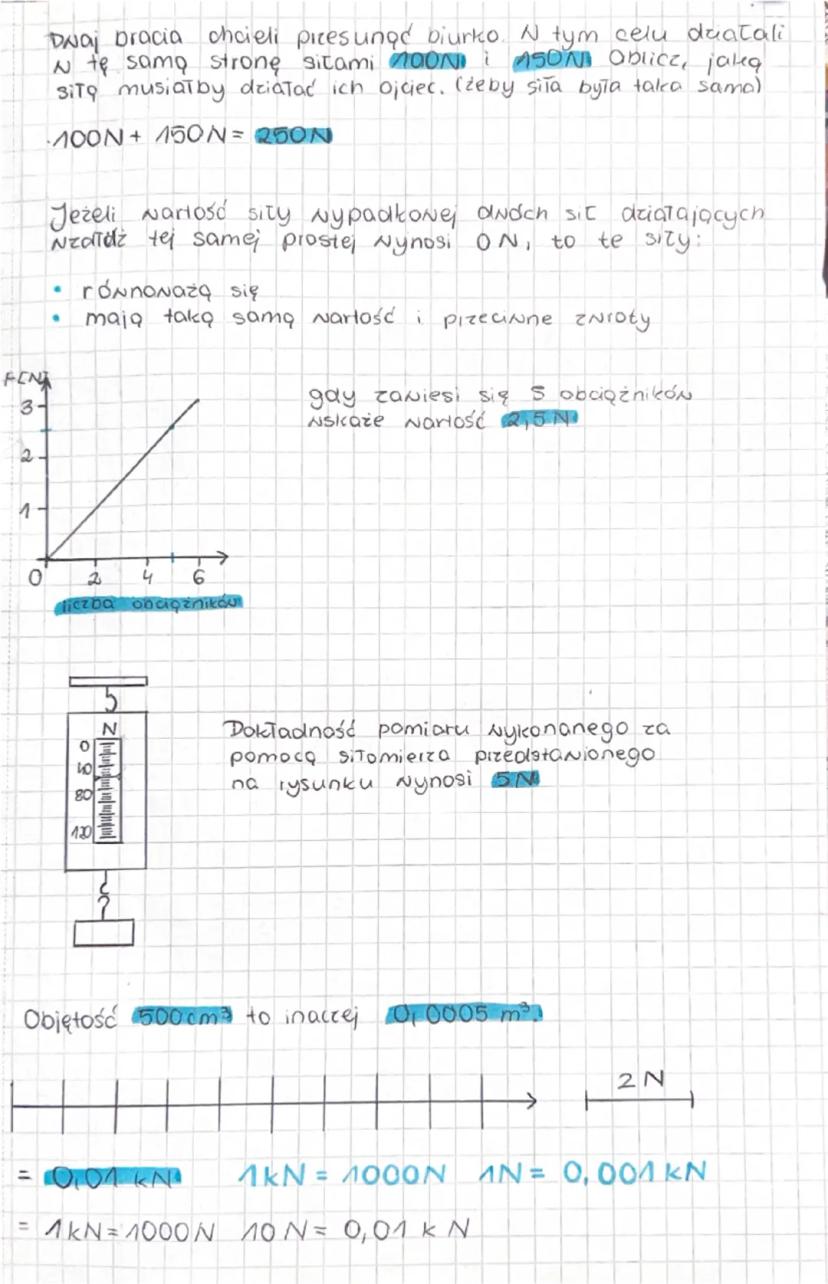 Dwaj bracia chcieli przesunąć biurko W tym celu działali
w tę samą stronę siłami 100N i 150N Oblicz, jaką
siłą musiałby działać ich ojciec. (żeby siła była taka sama)
100N + 150N = 250N
Jeżeli wartość siły wypadkowej dwóch sił działających
wzdłóż tej samej prostej wynosi 0N, to te siły:
• równoważą się
• mają taką samą wartość i przeciwne zwroty
F[N]
3
2
1
0 2 4 6
liczba obciążników
gdy zawiesi się 5 obciążników
wskaże wartość 2,5 N
N
0
40
80
120
Dokładność pomiaru wykonanego za
pomocą siłomierza przedstawionego
na rysunku wynosi 5N
Objętość 500cm³ to inaczej 0,0005 m³.
2 N
= 0,01 kN 1kN = 1000N 1N = 0,001 kN
= 1kN = 1000N 10N = 0,01 kN